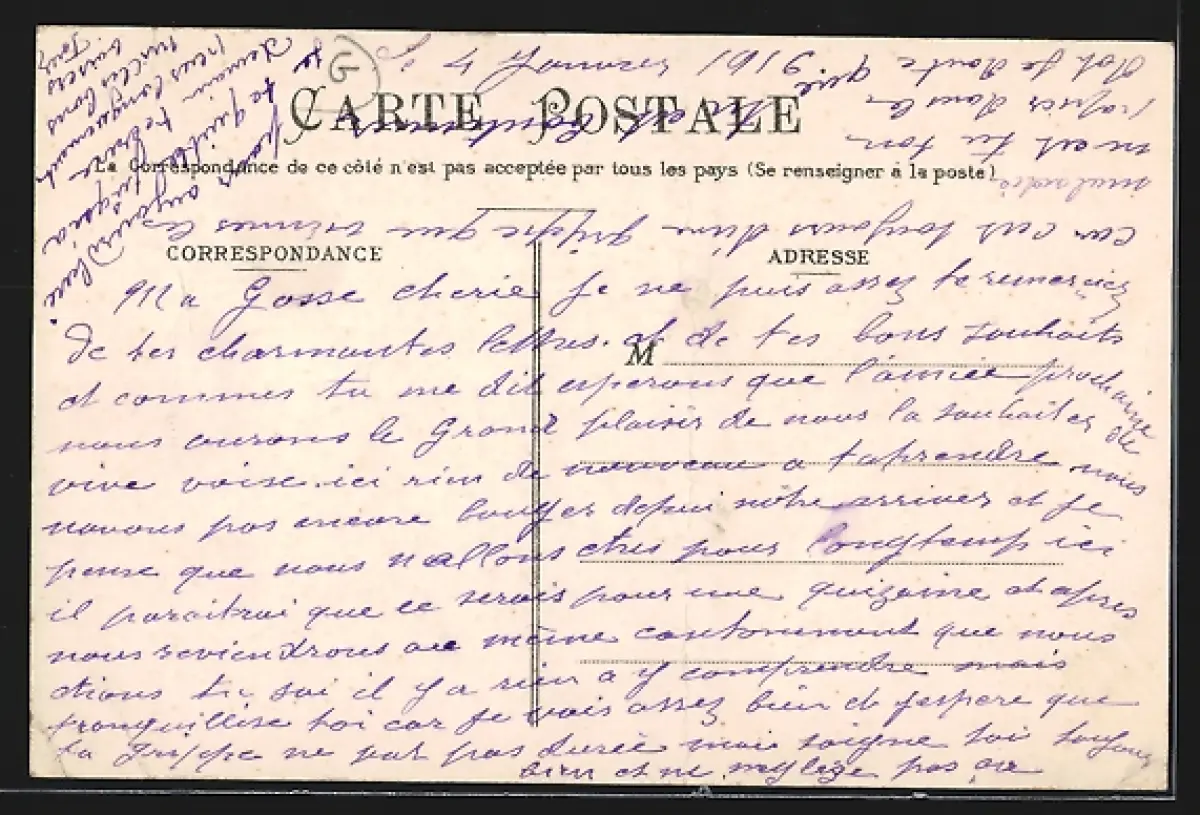 Le 4 Janvier 1916
CARTE POSTALE
La Correspondance de ce côté n'est pas acceptée par tous les pays (Se renseigner à la poste)
CORRESPONDANCE
ADRESSE
M
Ma Gosse cherie je ne puis assez te remerciez
de tes charmantes lettres et de tes bons souhaits
et commes tu me dit esperons que l'année prochaine
nous aurons le Grand plaisir de nous la souhaiter de
vive voise. ici rien de nouveau a taprendre nous
navons pas encore bouger depui nôtre arriver et je
pense que nous n allons etres pour longtemp ici
il paraitrai que ce serais pour une quizaine et apres
nous reviendrons au même cantonnement que nous
etions tu sai il y a rien a y comprendre mais
tranquillise toi car je vais assez bien et jespere que
ta grippe ne vat pas durée mai soigne toi toujours
bien et ne neglige pas
car cest toujours d'une grippe que viennes les
maladie
n'est tu ton
et je doute que
je te quitte
pour aujourd'hui
demain
mille bons
baisers
G